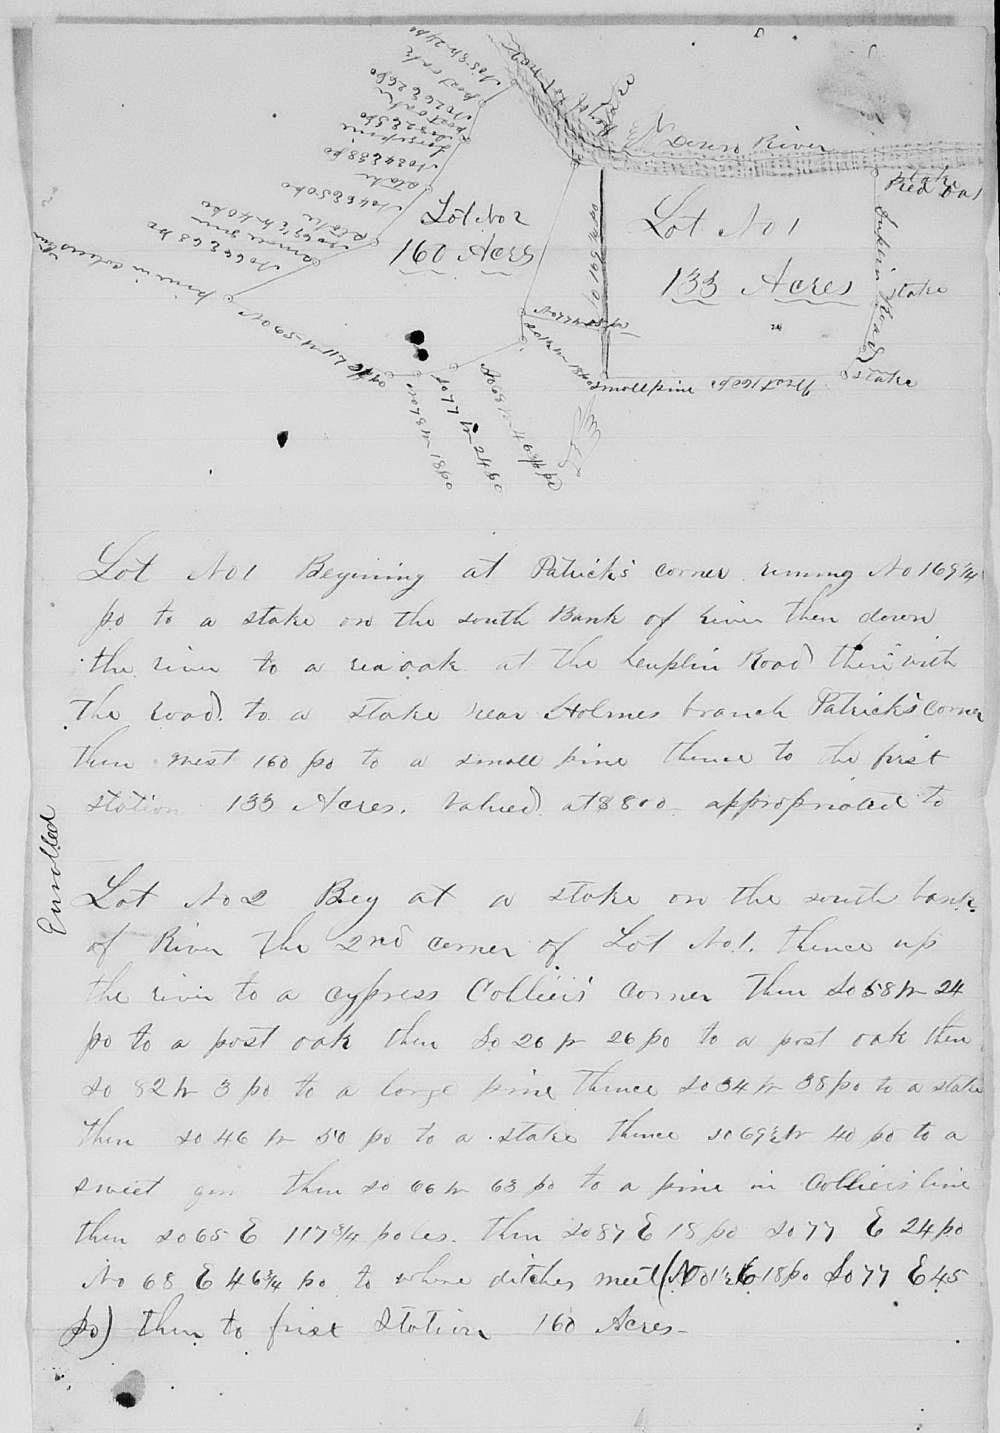 Neuse River
Lot No 2
160 Acres
Lot No 1
133 Acres
stake
Red Oak
Duplin Road
stake
stake
small pine West 160 po
No 169¾ po
pine in Colliers line
Lot No 1 Begining at Patrick's corner running No 169¾
po to a stake on the south Bank of river then down
the river to a red oak at the Duplin Road then with
The road to a stake near Holmes branch Patrick's corner
then west 160 po to a small pine thence to the first
station 133 Acres. Valued at $800 appropriated to
Enrolled
Lot No 2 Beg at a stake on the south bank
of River The 2nd corner of Lot No 1. thence up
the river to a cypress Collier's corner Then So 58 W 24
po to a post oak then So 26 W 26 po to a post oak then
So 82 W 3 po to a large pine thence So 34 W 38 po to a stake
then So 46 W 50 po to a stake thence So 69½ W 40 po to a
sweet gum then So 66 W 63 po to a pine in Collier's line
then So 65 E 117¾ poles. then So 87 E 18 po So 77 E 24 po
No 68 E 46¾ po to where ditches meet (No 1½ E 18 po So 77 E 45
po) then to first Station 160 Acres